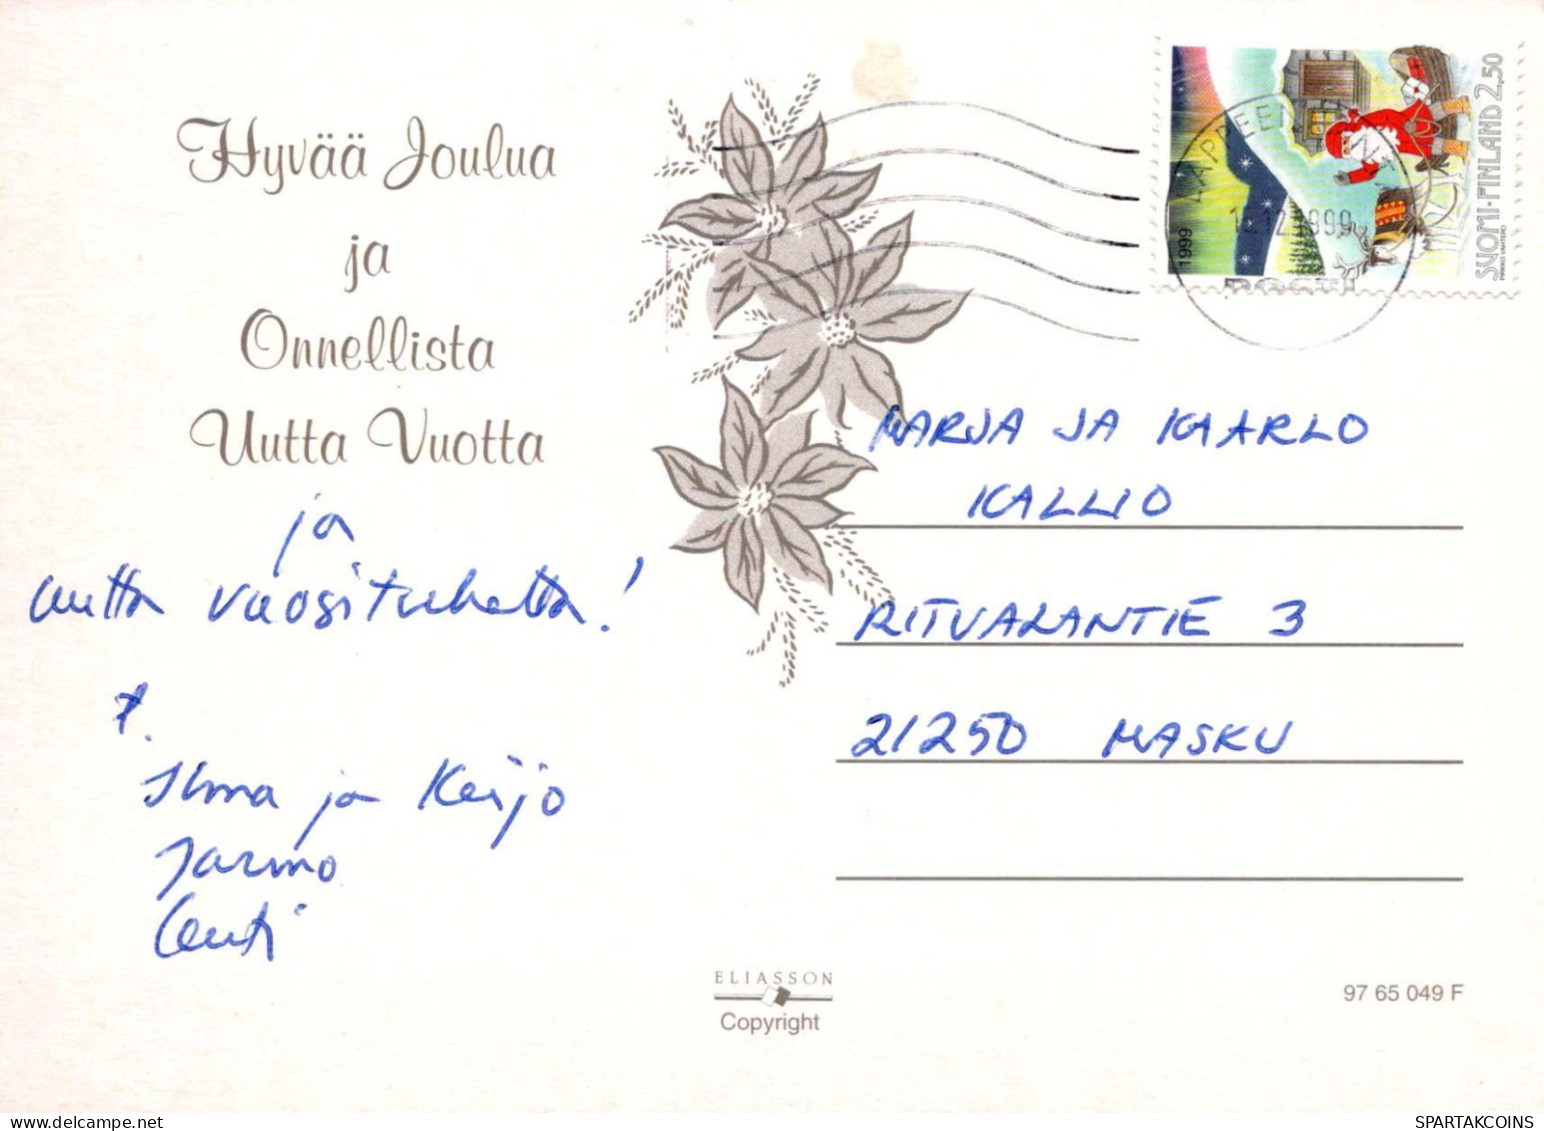 Hyvää Joulua
ja
Onnellista
Uutta Vuotta
ja
uutta vuosituhatta!
T.
Ilma ja Keijo
Jarmo
Outi
MARJA JA KAARLO
KALLIO
RITVALANTIE 3
21250 MASKU
1999
SUOMI-FINLAND 2,50
12.12.1999
ELIASSON
Copyright
97 65 049 F
SPARTAKCOINS